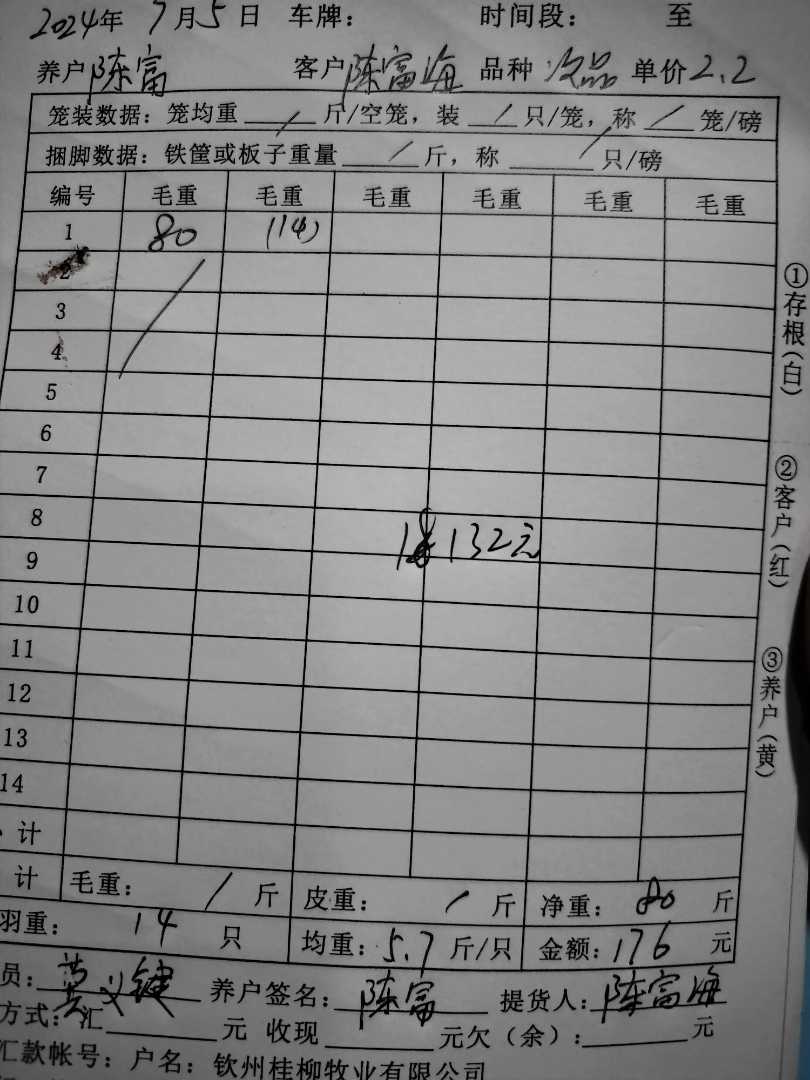 2024年 7月5日 车牌: 时间段: 至
养户 陈富 客户 陈富海 品种 次品 单价 2.2
笼装数据: 笼均重 / 斤/空笼, 装 / 只/笼, 称 / 笼/磅
捆脚数据: 铁筐或板子重量 / 斤, 称 / 只/磅
编号 毛重 毛重 毛重 毛重 毛重 毛重
1 80 (14)
2
3
4
5
6
7
8
132元
9
10
11
12
13
14
计
计 毛重: / 斤 皮重: / 斤 净重: 80 斤
羽重: 14 只 均重: 5.7 斤/只 金额: 176 元
员: 黄义键 养户签名: 陈富 提货人: 陈富海
方式: 汇 元 收现 元欠(余): 元
汇款帐号: 户名: 钦州桂柳牧业有限公司
①存根(白)
②客户(红)
③养户(黄)